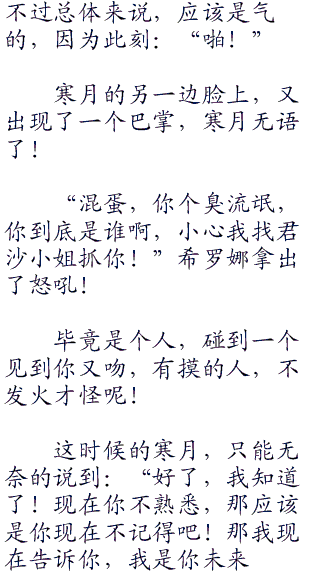 不过总体来说，应该是气
的，因为此刻：“啪！”
寒月的另一边脸上，又
出现了一个巴掌，寒月无语
了！
“混蛋，你个臭流氓，
你到底是谁啊，小心我找君
沙小姐抓你！”希罗娜拿出
了怒吼！
毕竟是个人，碰到一个
见到你又吻，有摸的人，不
发火才怪呢！
这时候的寒月，只能无
奈的说到：“好了，我知道
了！现在你不熟悉，那应该
是你现在不记得吧！那我现
在告诉你，我是你未来